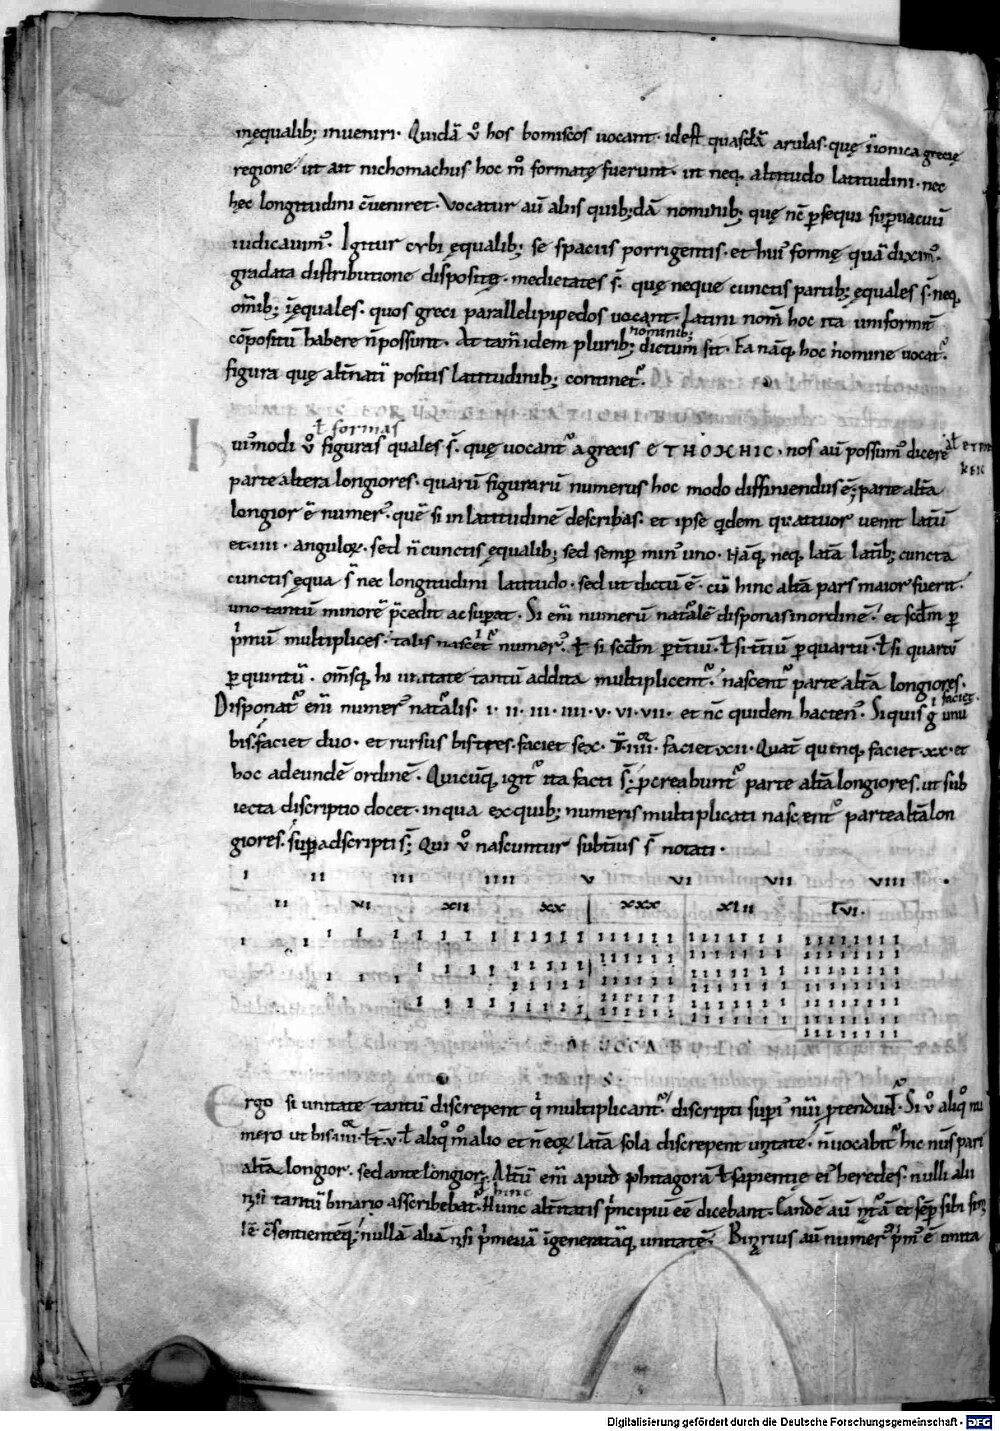 inęqualib; inueniri. Quidā v̊ hos bomiscos uocant. idest quasdā arulas. quę iionica gręcię
regione ut ait nichomachus hoc m̊ formatę fuerunt. ut neq, altitudo latitudini. nec
hęc longitudini c̄ueniret. Vocatur au̅ aliis quib;dā nominib; quę nc̄ p̱sequi sup̱uacuū
iudicauim᾿. Igitur cybi ęqualib; se spaciis porrigentis. et hui᾿ formę quā dixim᾿.
gradata distributione dispositę. medietates s̄. quę neque cunctis partib; ęquales s̄. neq,
om̄ib; īęquales. quos greci parallelipipedos uocant. Latini nom̄ hoc ita uniformit̄
cōpositū habere n̄ possunt. At tam̄ idem plurib; nominib; dictum sit. Ea nāq, hoc nomine uocat᾿.
figura quę alt̄natī positis latitudinib; continet᾿.
ł formas
Iui᾿modi v̊ figuras quales s̄. quę uocant᾿ a grecis ЄTHOXHIC. nos au̅ possum᾿ dicere
parte altera longiores. quarū figurarū numerus hoc modo diffiniendus ē; parte alt̄a
longior ē numer᾿. quē si in latitudinē describas. et ipse q̇dem quattuor uenit latū
et. iiii. anguloꝝ. sed n̄ cunctis ęqualib; sed semp̱ min᾿ uno. Nāq, neq, lat̄a lat̄ib; cuncta
cunctis ęqua s̄ nec longitudini latitudo. sed ut dictū ē. cū hinc alt̄a pars maior fuerit.
uno tantū minorē p̄cedit ac sup̱at. Si eni̅ numerū nat̄alē disponas in ordinē. et scd̄m p̱
p̓mum multiplices. talis nascet᾿ numer᾿. ł si scd̄m p̱ t̄tiū. ł si t̄tiū p̱ quartū. ł si quartū
p̱ quintū. om̄sq, hi unitate tantū addita multiplicent᾿. nascent᾿ parte alt̄a longiores.
Disponat᾿ eni̅ numer᾿ nat̄alis. i. ii. iii. iiii. v. vi. vii. et nc̄ quidem hacten᾿. Siquis g̓ unū faciet
bis. faciet duo. et rursus bis tres. faciet sex. faciet xii. Quat̄ quinq, faciet xx. et
hoc ad eundē ordinē. Quicūq, igit᾿ ita facti s̄. p̱creabunt᾿ parte alt̄a longiores. ut sub
iecta discriptio docet. in qua ex quib; numeris multiplicati nascent᾿ parte alt̄a lon
giores. sup̱adscripti s̄; Qui v̊ nascuntur subt̄ius s̄ notati.
I II III IIII V VI VII VIII
II VI XII XX XXX XLII LVI.
Ergo si unitate tantū discrepent q̓ multiplicant᾿. discripti sup̱i᾿ nūi p̱tenduł. Si v̊ aliq᾿ nu
mero ut bis ł aliq᾿ m̊ alio et n̄ eoꝝ lat̄a sola discrepent unitate. n̄ uocabit᾿ hic nūs pari
alt̄a longior. sed ante longior. Alt̄ū eni̅ apud phitagorā ł sapientię ei᾿ heredes. nulli alii
nisi tantū binario asscribebat᾿. Hunc alt̄natis p̓ncipiū ēē dicebant. Eandē au̅ nat̄ā et semp̱ sibi simi
lē c̄sentientēq, nullā aliā nisi p̓meuā īgeneratāq, unitatē. Binarius au̅ numer᾿ p̓m᾿ ē unita
Digitalisierung gefördert durch die Deutsche Forschungsgemeinschaft - DFG